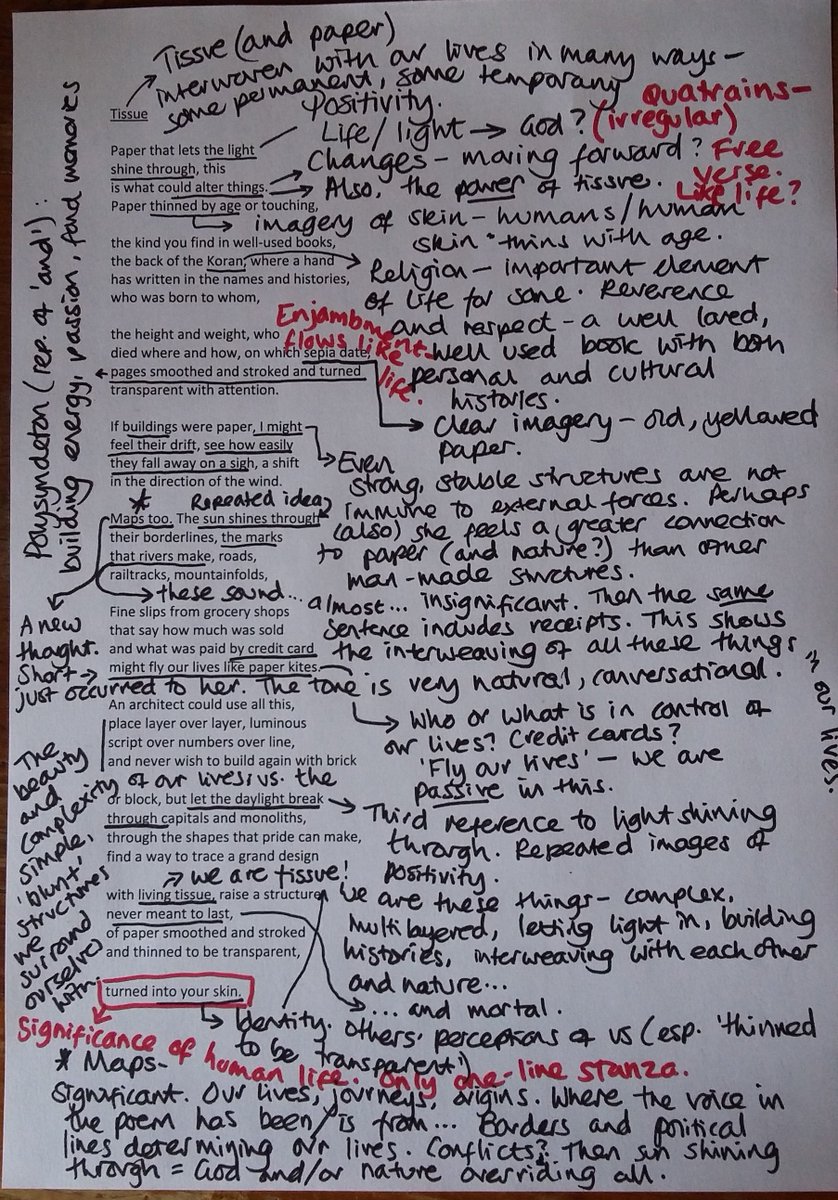 Tissue (and paper)
interwoven with our lives in many ways –
some permanent, some temporary
Tissue
Positivity.
Life/light → God?
Quatrains –
(irregular)
Free
verse.
Like life?
Paper that lets the light
shine through, this
is what could alter things.
Paper thinned by age or touching,
Changes – moving forward?
Also, the power of tissue.
imagery of skin – humans/human
skin thins with age.
the kind you find in well-used books,
the back of the Koran, where a hand
has written in the names and histories,
who was born to whom,
Religion – important element
of life for some. Reverence
and respect – a well loved,
well used book with both
personal and cultural
histories.
Enjambment
flows like
life.
the height and weight, who
died where and how, on which sepia date,
pages smoothed and stroked and turned
transparent with attention.
Polysyndeton (rep. of 'and'):
building energy, passion, fond memories
Clear imagery – old, yellowed
paper.
If buildings were paper, I might
feel their drift, see how easily
they fall away on a sigh, a shift
in the direction of the wind.
Even
strong, stable structures are not
immune to external forces. Perhaps
(also) she feels a greater connection
to paper (and nature?) than other
man-made structures.
* Repeated idea
Maps too. The sun shines through
their borderlines, the marks
that rivers make, roads,
railtracks, mountainfolds,
these sound...
almost... insignificant. Then the same
sentence includes receipts. This shows
the interweaving of all these things
in our lives.
A new
thought.
Short →
just occurred to her. The tone is very natural, conversational.
Fine slips from grocery shops
that say how much was sold
and what was paid by credit card
might fly our lives like paper kites.
Who or what is in control of
our lives? Credit cards?
'Fly our lives' – we are
passive in this.
An architect could use all this,
place layer over layer, luminous
script over numbers over line,
and never wish to build again with brick
The
beauty
and
complexity of our lives vs. the
simple,
'blunt'
structures
we
surround
ourselves
with.
or block, but let the daylight break
through capitals and monoliths,
through the shapes that pride can make,
find a way to trace a grand design
Third reference to light shining
through. Repeated images of
positivity.
→ we are tissue!
with living tissue, raise a structure
never meant to last,
of paper smoothed and stroked
and thinned to be transparent,
We are these things – complex,
multilayered, letting light in, building
histories, interweaving with each other
and nature...
... and mortal.
turned into your skin.
Identity. Others' perceptions of us (esp. 'thinned
to be transparent')
Significance of human life. Only one-line stanza.
* Maps –
significant. Our lives, journeys, origins. Where the voice in
the poem has been/is from... Borders and political
lines determining our lives. Conflicts? Then sun shining
through = God and/or nature overriding all.